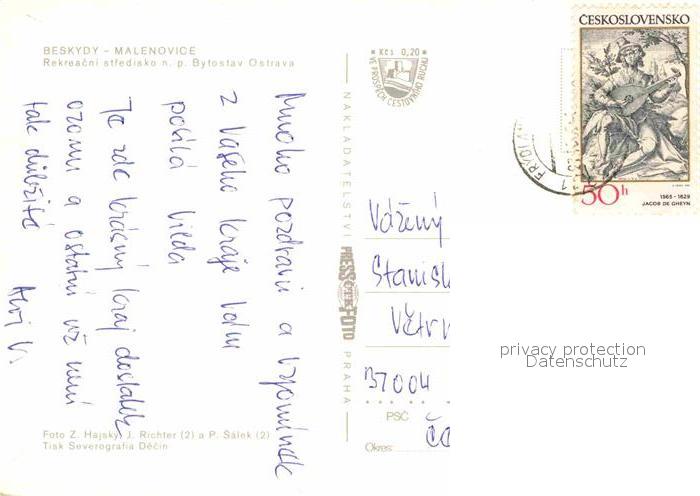 BESKYDY – MALENOVICE
Rekreační středisko n. p. Bytostav Ostrava
Mnoho pozdravů a vzpomínek
z Vašeho kraje Vám
posílá Vilda
Je zde krásný kraj dostatek
ozonu a ostatní už není
tak důležité
Foto Z. Hajský, J. Richter (2) a P. Šálek (2)
Tisk Severografia Děčín
Kčs 0,20
VE PROSPĚCH CESTOVNÍHO RUCHU
NAKLADATELSTVÍ
PRESSFOTO
PRAHA
ČESKOSLOVENSKO
50h
1565 - 1629
JACOB DE GHEYN
Vážený
Stanisl
Větrn
37004
PSČ
Okres:
privacy protection
Datenschutz